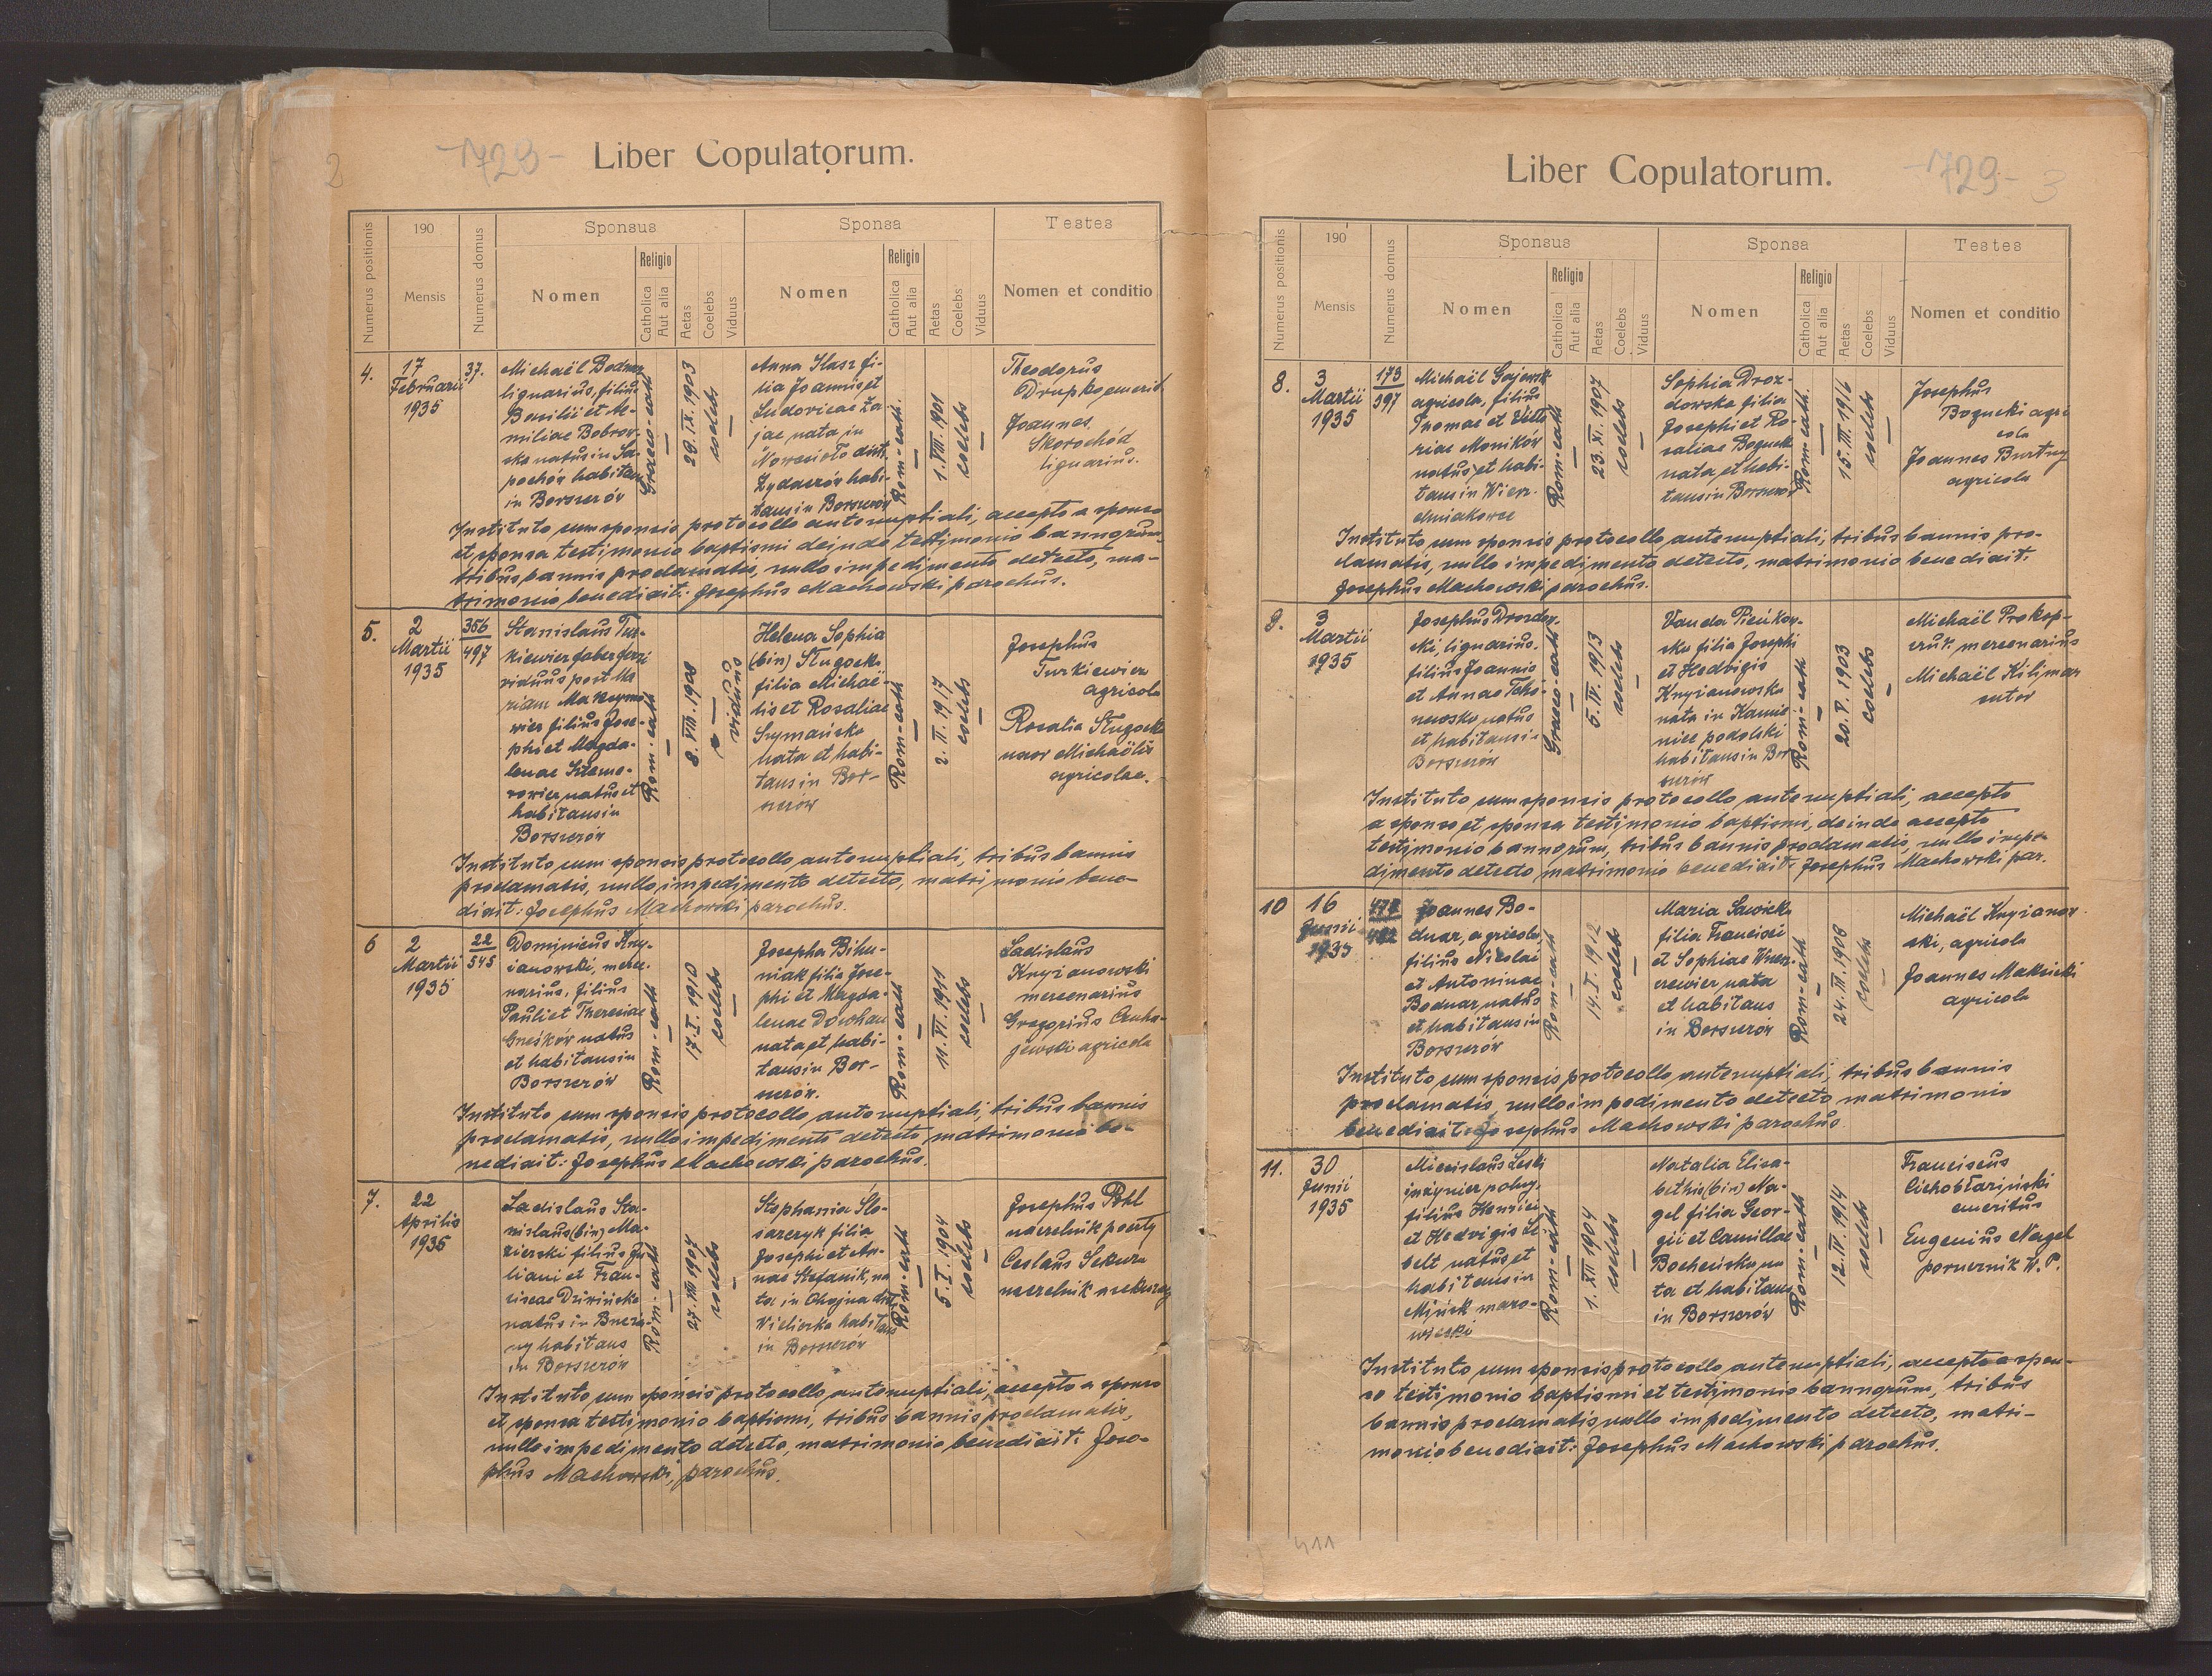 2
-728-
Liber Copulatorum.
Numerus positionis
190
Mensis
Numerus domus
Sponsus
Nomen
Religio
Catholica
Aut alia
Aetas
Coelebs
Viduus
Sponsa
Nomen
Religio
Catholica
Aut alia
Aetas
Coelebs
Viduus
Testes
Nomen et conditio
4.
17
Februarii
1935
37.
Michaël Bodnar
lignarius, filius
Basilii et
miliae Bobrow-
ska natus in Sa-
pochów habitans
in Borszczów
Graeco-cath
29.IX.1903
coelebs
Anna Ilasz fi-
lia Joannis et
Ludovicae Za-
jac nata in
dist.
Żydaczów habi-
tans in Borszczów
Rom-cath.
1.VIII.1901
coelebs
Theodorus
Drupko emerit
Joannes
Skorochód
lignarius.
Instituto cum sponsis protocollo antenuptiali, accepto a sponso
et sponsa testimonio baptismi deinde testimonio bannorum,
tribus bannis proclamatis, nullo impedimento detecto, ma-
trimonio benedixit: Josephus Machowski parochus.
5.
2
Martii
1935
356
497
Stanislaus Tur-
kiewicz faber ferri
viduus post Ma
riam Maksymo
wicz filius Jose-
phi et Magda-
lenae
rowicz natus et
habitans in
Borszczów
Rom-cath
8.VIII.1908
viduus
Helena Sophia
(bin) Sługocka
filia Michaë-
lis et Rosaliae
Szymańska
nata et habi-
tans in Bor-
szczów
Rom-cath
2.II.1917
coelebs
Josephus
Turkiewicz
agricola
Rosalia Sługocka
uxor Michaëlis
agricolae.
Instituto cum sponsis protocollo antenuptiali, tribus bannis
proclamatis, nullo impedimento detecto, matrimonio bene-
dixit: Josephus Machowski parochus.
6
2
Martii
1935
22
545
Dominicus Kny-
żanowski, merce-
narius, filius
Pauli et Theresiae
Gneśków natus
et habitans in
Borszczów
Rom-cath
17.I.1910
coelebs
Josepha Bihu-
niak filia Jose-
phi et Magda-
lenae Dowhan
nata et habi-
tans in Bor-
szczów.
Rom-cath
11.VI.1911
coelebs
Ladislaus
Knyżanowski
mercenarius
Gregorius
jewski agricola
Instituto cum sponsis protocollo antenuptiali, tribus bannis
proclamatis, nullo impedimento detecto matrimonio be-
nedixit: Josephus Machowski parochus.
7.
22
Aprilis
1935
Ladislaus Sta-
nislaus (bin) Ma-
zierski filius Ju
liani et Fran-
ciscae Dziwińska
natus in
habitans
in Borszczów
Rom-cath
27.VIII 1907
coelebs
Stephania Ślo-
sarczyk filia
Josephi et An-
nae Stefanik, na
ta in Chojna dist
Wieliczka habitans
in Borszczów
Rom-cath
5.I.1904
coelebs
Josephus Pohl
naczelnik poczty
Ceslaus Sekura
naczelnik
Instituto cum sponsis protocollo antenuptiali, accepto a sponso
et sponsa testimonio baptismi, tribus bannis proclamatis,
nullo impedimento detecto, matrimonio benedixit: Jose-
phus Machowski, parochus.
Liber Copulatorum.
-729-
3
Numerus positionis
190
Mensis
Numerus domus
Sponsus
Nomen
Religio
Catholica
Aut alia
Aetas
Coelebs
Viduus
Sponsa
Nomen
Religio
Catholica
Aut alia
Aetas
Coelebs
Viduus
Testes
Nomen et conditio
8.
3
Martii
1935
173
397
Michaël Gajewsk
agricola, filius
Thomae et Victo
riae Moników
natus et habi-
tans in Wierz-
chniakowce
Rom-cath
23.XI.1907
coelebs
Sophia Droz-
dowska filia
Josephi et Ro-
saliae Bogucka
nata et habi-
tans in Borszczów
Rom-cath.
15.III.1916
coelebs
Josephus
Bogucki agri
cola
Joannes Burtny
agricola
Instituto cum sponsis protocollo antenuptiali, tribus bannis pro-
clamatis, nullo impedimento detecto, matrimonio benedixit:
Josephus Machowski parochus.
9.
3
Martii
1935
Josephus Drozdow-
ski, lignarius,
filius Joannis
et Annae
natus
et habitans in
Borszczów
Graeco cath
5.IV.1913
coelebs
Vanda Pieńkow-
ska filia Josephi
et Hedvigis
Knyżanowska
nata in Kamie
niec podolski
habitans in Bor
szczów
Rom-cath
20.V.1903
coelebs
Michaël Prokop-
czuk mercenarius
Michaël Kilijmar
sutor
Instituto cum sponsis protocollo antenuptiali, accepto
a sponso et sponsa testimonio baptismi, deinde accepto
testimonio bannorum, tribus bannis proclamatis, nullo impe
dimento detecto matrimonio benedixit: Josephus Machowski par.
10
16
Junii
1935
478
482
Joannes Bo-
dnar, agricola,
filius Nikolai
et Antoninae
Bodnar natus
et habitans in
Borszczów
Rom-cath
14.I.1912
coelebs
Maria Sawicka
filia Francisci
et Sophiae
nata
et habitans
in Borszczów
Rom-cath
24.III.1908
coelebs
Michaël Knyżanow
ski, agricola
Joannes Maksicki
agricola
Instituto cum sponsis protocollo antenuptiali, tribus bannis
proclamatis, nullo impedimento detecto matrimonio
benedixit: Josephus Machowski parochus
11.
30
Junii
1935
Miecislaus Leski
inżynier polny,
filius Henrici
et Hedvigis Si
belt natus et
habitans in
Mińsk mazo-
wiecki
Rom-cath
1.XII 1904
coelebs
Natalia Elisa-
betha (bin) Na-
gel filia Geor-
gii et Camillae
Bocheńska na
ta et habitans
in Borszczów
Rom-cath
12.IV.1914
coelebs
Franciscus
Cichobłaziński
emeritus
Eugenius Nagel
porucznik W.P.
Instituto cum sponsis protocollo antenuptiali, accepto a spon-
so testimonio baptismi et testimonio bannorum, tribus
bannis proclamatis nullo impedimento detecto, matri-
monio benedixit: Josephus Machowski parochus.
411